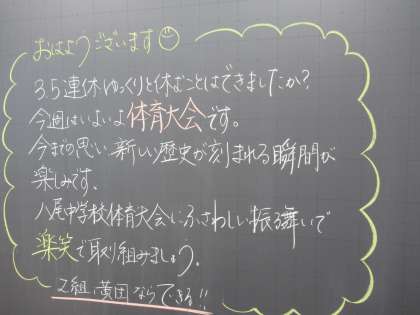 おはようございます
3.5連休ゆっくりと休むことはできましたか?
今週はいよいよ体育大会です。
今までの思い、新しい歴史が刻まれる瞬間が
楽しみです。
八尾中学校体育大会にふさわしい振る舞いで
楽笑で取り組みましょう。
2組、黄団ならできる!!